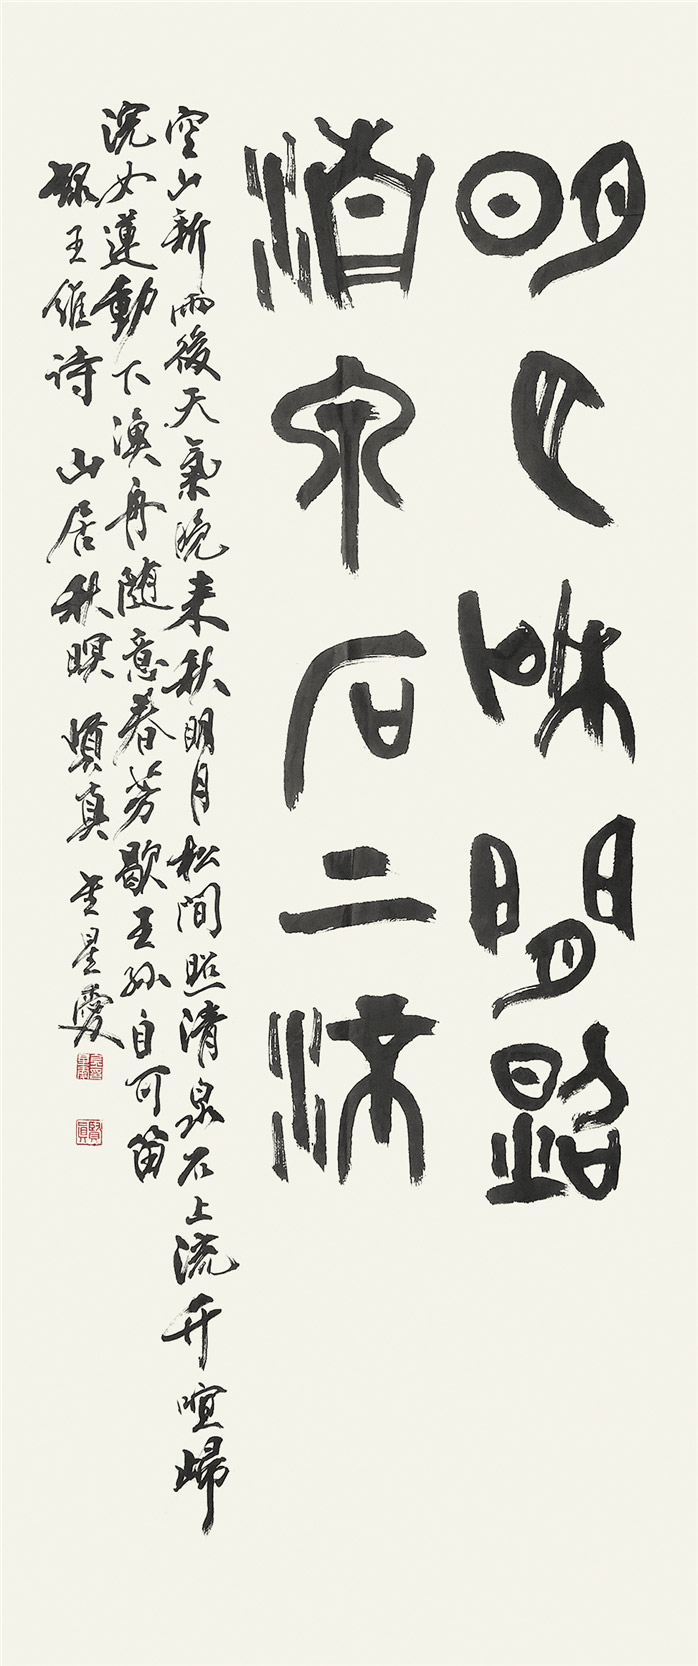 明月松間照
清泉石上流
空山新雨後天氣晚来秋明月松間照清泉石上流竹喧歸
浣女蓮動下漁舟隨意春芳歇王孫自可留
録王維诗 山居秋暝 慎真 星愛